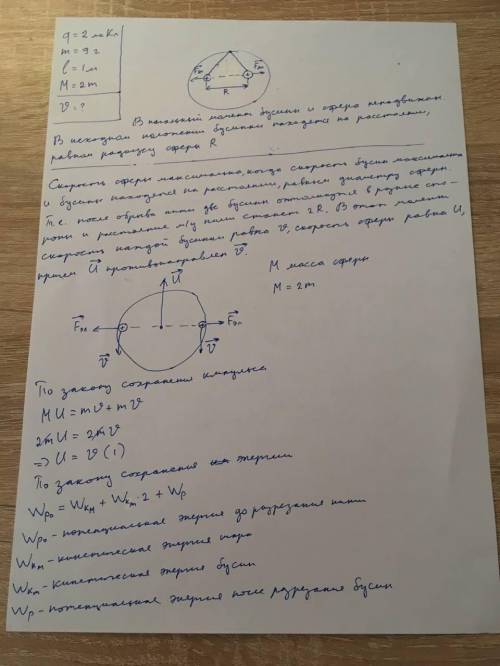 q = 2 мкКл
m = 9 г
l = 1 м
M = 2m
υ = ?
Fэл Fэл
R
В начальный момент бусины и сфера неподвижны.
В исходном положении бусинки находятся на расстоянии,
равном радиусу сферы R
Скорость сферы максимальна, когда скорость бусин максимальна
и бусины находятся на расстоянии, равном диаметру сферы.
Т.е. после обрыва нити две бусины оттолкнутся в разные сто-
роны и расстояние м/у ними станет 2R. В этот момент
скорость каждой бусинки равна υ, скорость сферы равна U,
причем U противонаправлен υ.
U
M масса сферы
M = 2m
Fэл Fэл
υ υ
По закону сохранения импульса
MU = mυ + mυ
2mU = 2mυ
=> U = υ (1)
По закону сохранения энергии
Wp₀ = Wкм + Wкm · 2 + Wp
Wp₀ - потенциальная энергия до разрезания нити
Wкм - кинетическая энергия шара
Wкm - кинетическая энергия бусин
Wp - потенциальная энергия после разрезания бусин